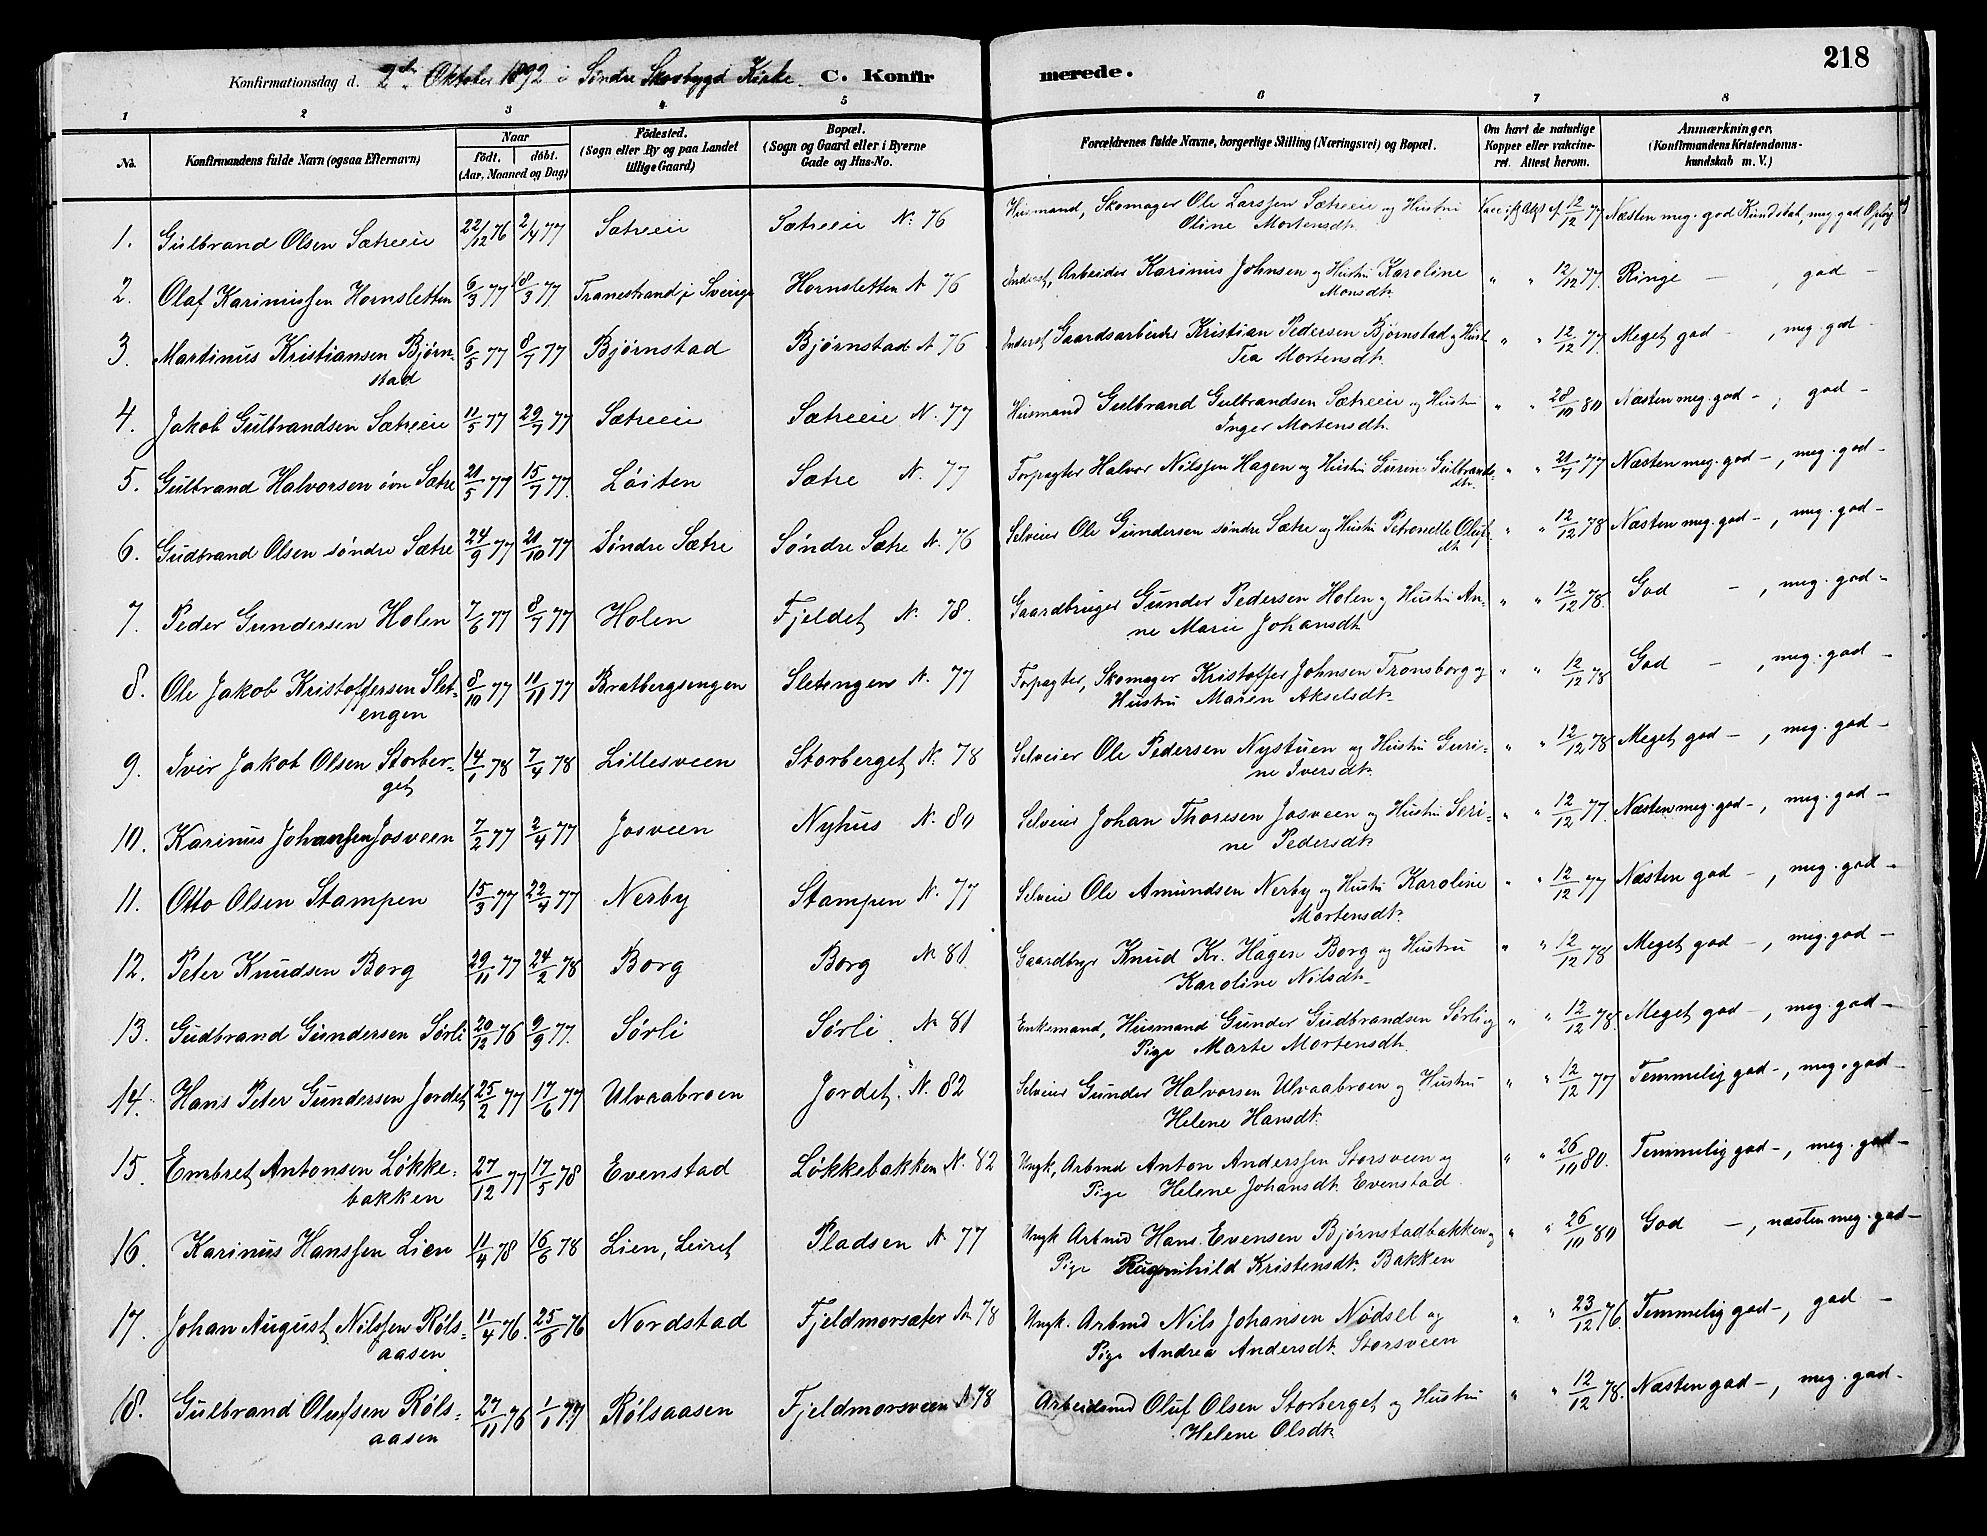 218
Konfirmationsdag d. 2den Oktober 1892 i Søndre Skovbygd Kirke. C. Konfirmerede.
1 2 3 4 5 6 7 8
No. Konfirmandens fulde Navn (ogsaa Efternavn) Naar födt. döbt. (Aar, Maaned og Dag) Födested. (Sogn eller By og paa Landet tillige Gaard) Bopæl. (Sogn og Gaard eller i Byerne Gade og Hus-No. Forældrenes fulde Navne, borgerlige Stilling (Næringsvei) og Bopæl. Om havt de naturlige Kopper eller vakcineret. Attest herom. Anmærkninger, (Konfirmandens Kristendomskundskab m. V.)
1. Gulbrand Olsen Sætreeie 22/12 76 2/4 77 Sætreeie Sætreeie N. 76 Husmand, Skomager Ole Larssen Sætreeie og Hustru Oline Mortensdt. 12/12 77 Næsten meg. god Kundskab, meg. god
2. Olaf Karinussen Hornsletten 6/3 77 18/3 77 Tranestrand i Sverige Hornsletten N. 76 Inderst, Arbeider Karinus Johnsen og Hustru Karoline Monsdt. " " 12/12 77. Ringe – , god –
3. Martinus Kristiansen Bjørnstad 6/5 77 8/7 77 Bjørnstad Bjørnstad N. 76 Inderst, Gaardsarbeider Kristian Pedersen Bjørnstad og Hust. Tea Mortensdt. " " 12/12 77. Meget god – , meg. god –
4. Jakob Gulbrandsen Sætreeie 11/5 77 29/7 77 Sætreeie Sætreeie N. 77 Husmand Gulbrand Gulbrandsen Sætreeie og Hustru Inger Mortensdt. " " 28/10 80 Næsten meg. god – , god –
5. Gulbrand Halvorsen øvre Sætre 21/5 77 15/7 77. Løiten Sætre N. 77 Forpagter Halvor Nilssen Hagen og Hustru Gurine Gulbrandsdt. " " 21/7 77 Næsten meg. god – , meg. god –
6. Gudbrand Olsen søndre Sætre 24/9 77 21/10 77 Søndre Sætre Søndre Sætre N. 76 Selveier Ole Gundersen søndre Sætre og Hustru Petronelle Olufsdt. " " 12/12 78 Næsten meg. god – , meg. god –
7. Peder Gundersen Holen 7/6 77 8/7 77 Holen Fjeldet N. 78. Gaardbruger Gunder Pedersen Holen og Hustru Anne Marie Johansdt. " " 12/12 78. God – , meg. god –
8. Ole Jakob Kristoffersen Sletengen 8/10 77 11/11 77 Bratbergsengen Sletengen N. 77 Forpagter, Skomager Kristoffer Johnsen Tronsborg og Hustru Maren Akselsdt. " " 12/12 78 God – , meg. god –
9. Iver Jakob Olsen Storberget 14/1 78 7/4 78 Lillesveen Storberget N. 78 Selveier Ole Pedersen Nystuen og Hustru Gurine Iversdt. " " 12/12 78. Meget god – , meg. god –
10. Karinus Johanssen Josveen 7/2 77 2/4 77 Josveen Nyhus N. 80 Selveier Johan Thoresen Josveen og Hustru Serine Pedersdt. " " 12/12 77. Næsten meg. god – , meg. god –
11. Otto Olsen Stampen 15/3 77 22/4 77 Nerby Stampen N. 77 Selveier Ole Amundsen Nerby og Hustru Karoline Mortensdt. " " 12/12 77 Næsten god – , meg. god –
12. Peter Knudsen Borg 29/11 77 24/2 78 Borg Borg N. 81. Gaardbrgr Knud Kr. Hagen Borg og Hustru Karoline Nilsdt. " " 12/12 78 Meget god – , meg. god –
13. Gudbrand Gundersen Sørli 20/12 76 9/9 77. Sørli Sørli N. 81 Enkemand, Husmand Gunder Gudbrandsen Sørli og Pige Marte Mortensdt. " " 12/12 78. Meget god – , meg. god –
14. Hans Peter Gundersen Jordet 25/2 77 17/6 77 Ulvaabroen Jordet N. 82 Selveier Gunder Halvorsen Ulvaabroen og Hustru Helene Hansdt. " " 12/12 77 Temmelig god – , meg. god –
15. Embret Antonsen Løkkebakken 27/12 77 17/5 78 Evenstad Løkkebakken N. 82 Ungk, Arbmd Anton Anderssen Storsveen og Pige Helene Johansdt. Evenstad. " " 26/10 80. Temmelig god – , meg. god –
16. Karinus Hanssen Lien 11/4 78 16/6 78 Lien, Leiret Pladsen N. 77 Ungk. Arbmd Hans Evensen Bjørnstadbakken og Pige Ragnhild Kristensdt. Bakken " " 26/10 80 God – , næsten meg. god –
17. Johan August Nilssen Rølsaasen 11/4 76. 25/6 76 Nordstad Fjeldmorsæter N. 78 Ungk. Arbmd Nils Johansen Nødsel og Pige Andrea Andersdt. Storsveen " " 23/12 76. Temmelig god – , god –
18. Gulbrand Olufsen Rølsaasen 27/11 76 1/1 77 Rølsaasen Fjeldmorsveen N. 78 Arbeidsmd Oluf Olsen Storberget og Hustru Helene Olsdt. " " 12/12 78. Næsten god – , meg. god –